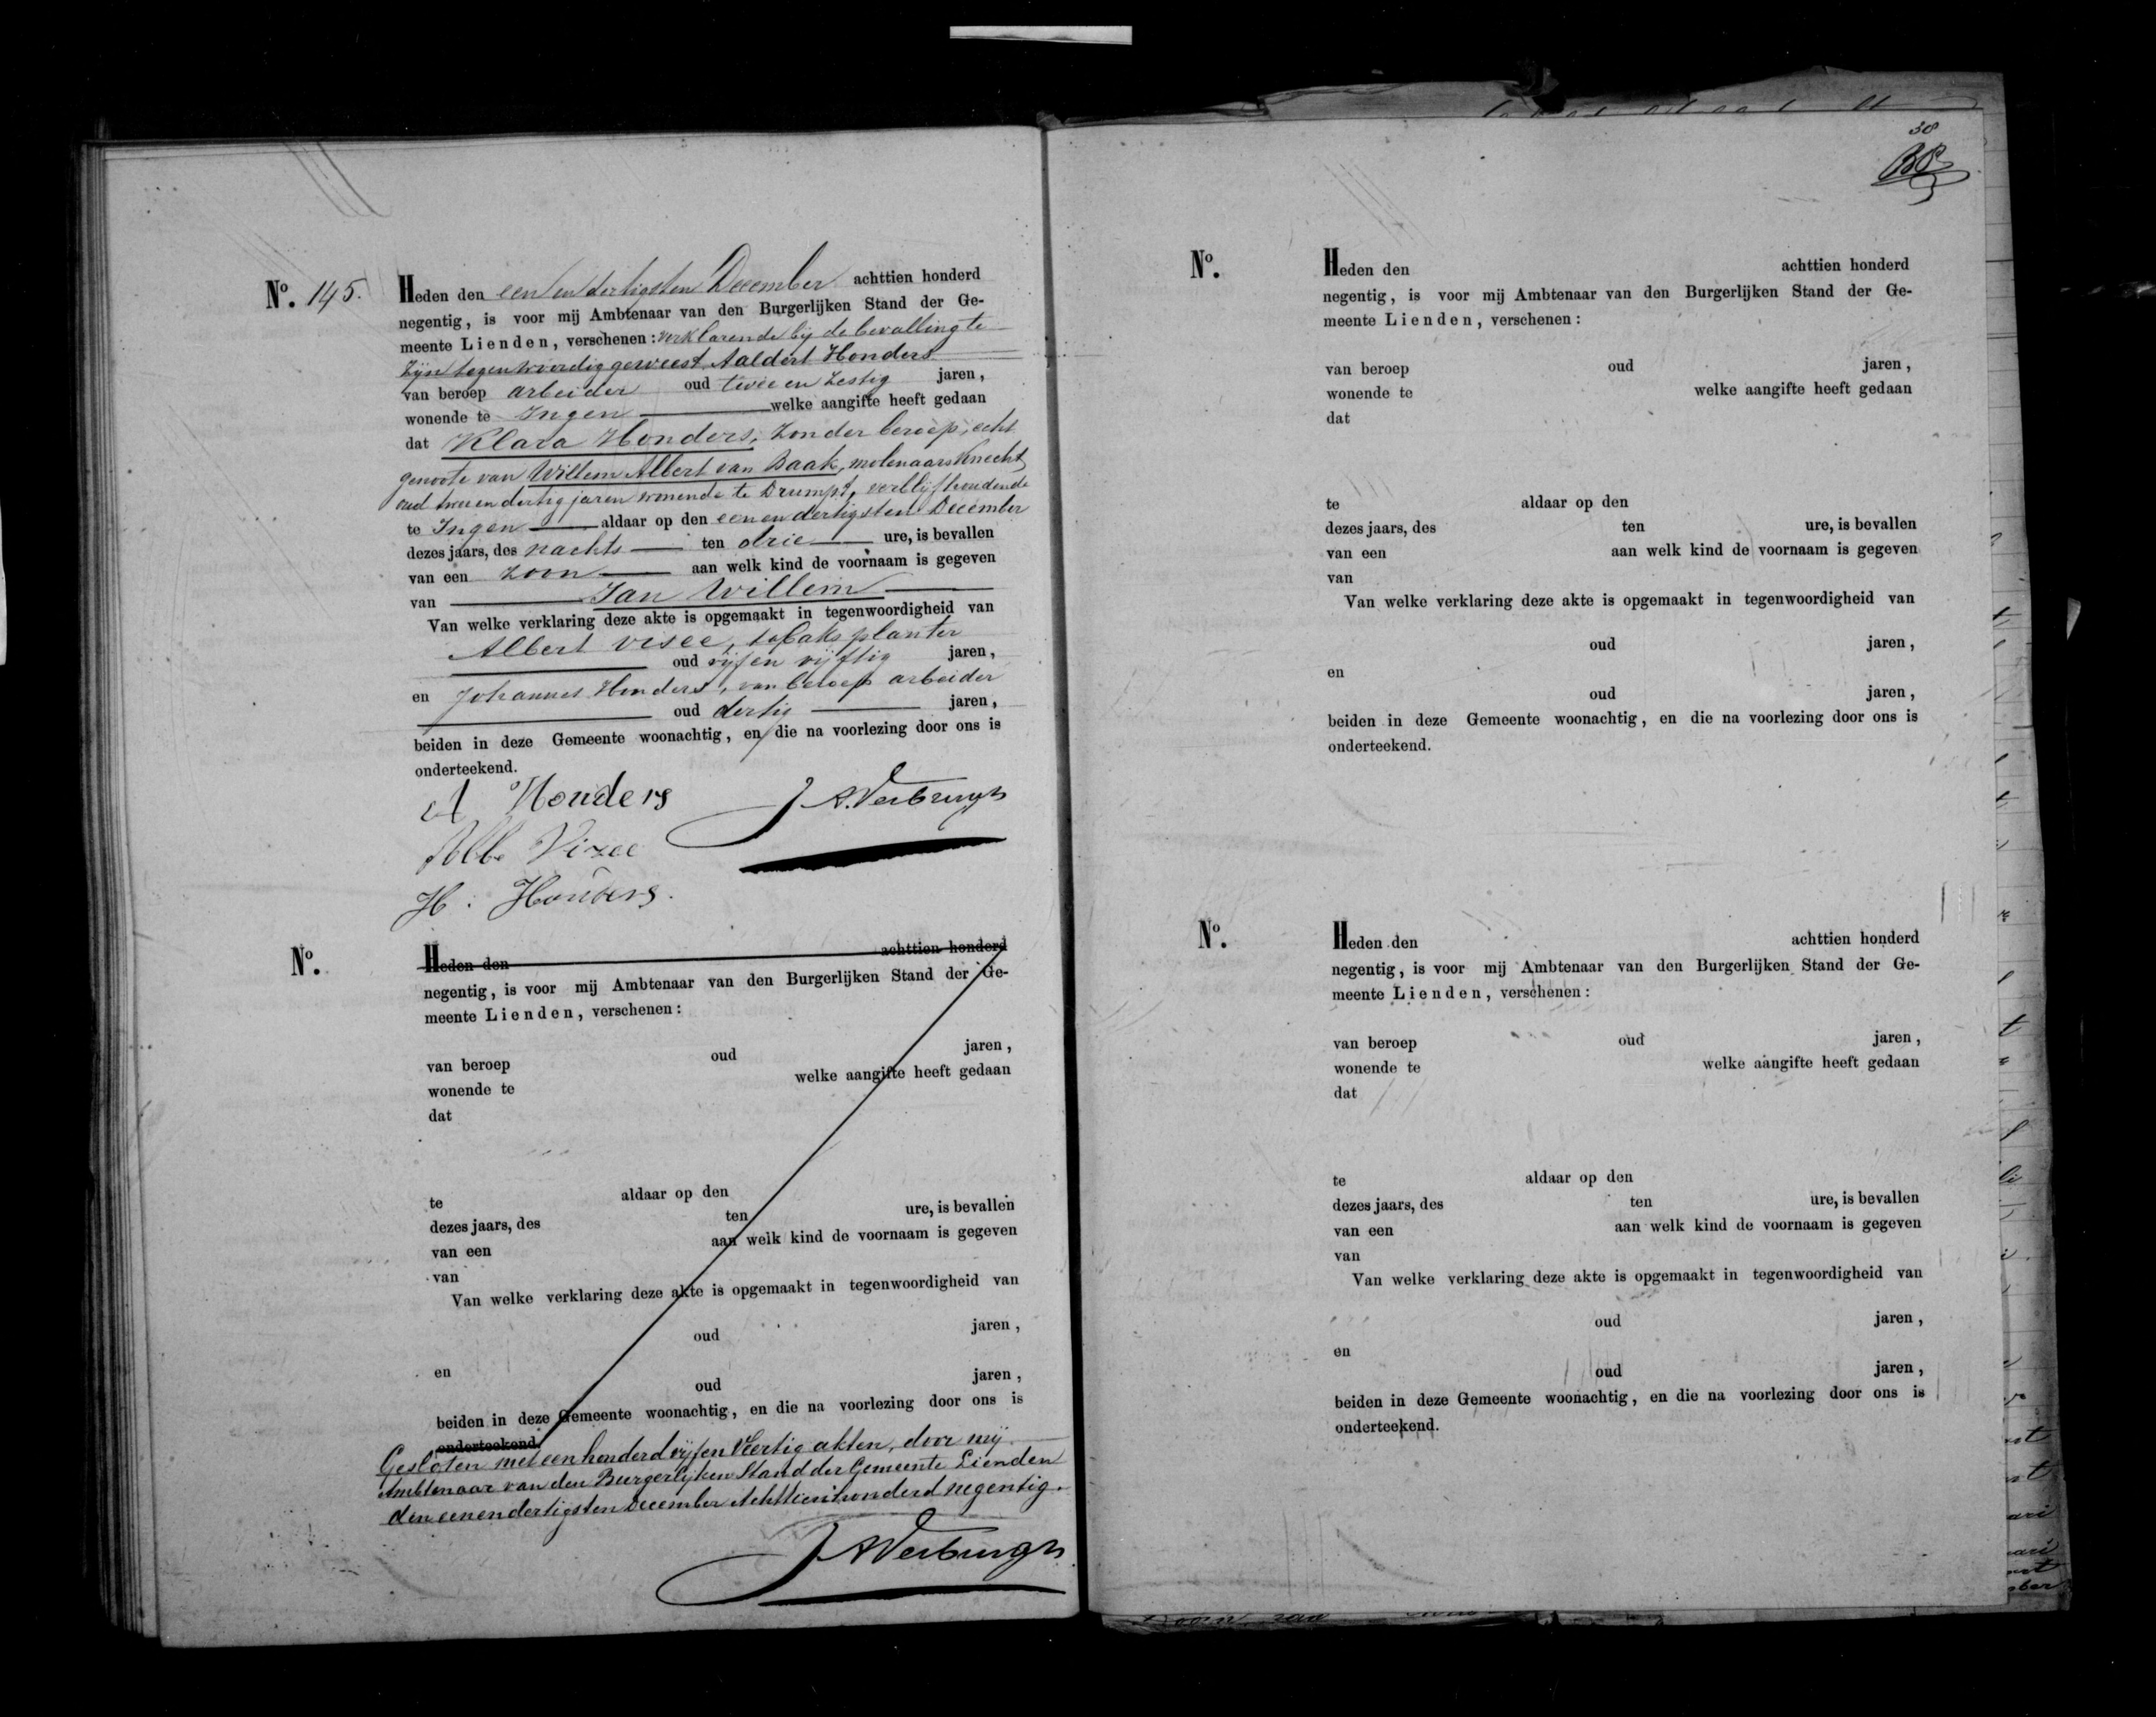 Nº. 145. Heden den een en dertigsten December achttien honderd
negentig, is voor mij Ambtenaar van den Burgerlijken Stand der Ge-
meente Lienden, verschenen: verklarende bij de bevalling te
zijn tegenwoordig geweest Aaldert Honders
van beroep arbeider oud twee en zestig jaren,
wonende te Ingen welke aangifte heeft gedaan
dat Klara Honders, zonder beroep, echt
genoote van Willem Albert van Baak, molenaarsknecht
oud twee en dertig jaren wonende te Drumpt, verblijfhoudende
te Ingen aldaar op den een en dertigsten December
dezes jaars, des nachts ten drie ure, is bevallen
van een zoon aan welk kind de voornaam is gegeven
van Jan Willem
Van welke verklaring deze akte is opgemaakt in tegenwoordigheid van
Albert visee, tabaksplanter
oud vijf en vijftig jaren,
en Johannes Honders, van beroep arbeider
oud dertig jaren,
beiden in deze Gemeente woonachtig, en die na voorlezing door ons is
onderteekend.
A Honders J A. Verbrugh
Alb. Vizee
H. Honders.
Nº. Heden den achttien honderd
negentig, is voor mij Ambtenaar van den Burgerlijken Stand der Ge-
meente Lienden, verschenen:
van beroep oud jaren,
wonende te welke aangifte heeft gedaan
dat
te aldaar op den
dezes jaars, des ten ure, is bevallen
van een aan welk kind de voornaam is gegeven
van
Van welke verklaring deze akte is opgemaakt in tegenwoordigheid van
oud jaren,
en
oud jaren,
beiden in deze Gemeente woonachtig, en die na voorlezing door ons is
onderteekend.
Gesloten met een honderd vijf en veertig akten, door mij
Ambtenaar van den Burgerlijken Stand der Gemeente Lienden
den een en dertigsten December Achttien honderd negentig.
J A Verbrugh
38
Nº. Heden den achttien honderd
negentig, is voor mij Ambtenaar van den Burgerlijken Stand der Ge-
meente Lienden, verschenen:
van beroep oud jaren,
wonende te welke aangifte heeft gedaan
dat
te aldaar op den
dezes jaars, des ten ure, is bevallen
van een aan welk kind de voornaam is gegeven
van
Van welke verklaring deze akte is opgemaakt in tegenwoordigheid van
oud jaren,
en
oud jaren,
beiden in deze Gemeente woonachtig, en die na voorlezing door ons is
onderteekend.
Nº. Heden den achttien honderd
negentig, is voor mij Ambtenaar van den Burgerlijken Stand der Ge-
meente Lienden, verschenen:
van beroep oud jaren,
wonende te welke aangifte heeft gedaan
dat
te aldaar op den
dezes jaars, des ten ure, is bevallen
van een aan welk kind de voornaam is gegeven
van
Van welke verklaring deze akte is opgemaakt in tegenwoordigheid van
oud jaren,
en
oud jaren,
beiden in deze Gemeente woonachtig, en die na voorlezing door ons is
onderteekend.